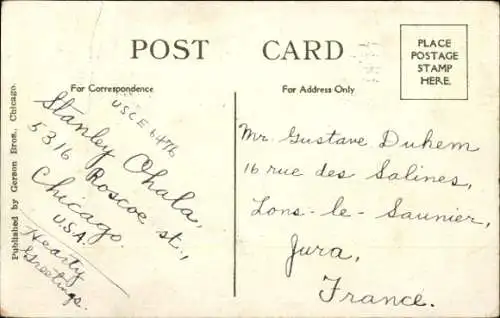 POST CARD
PLACE
POSTAGE
STAMP
HERE.
For Correspondence
For Address Only
Published by Gerson Bros., Chicago.
USCE 6476
Stanley Ohala,
5316 Roscoe st.,
Chicago.
U.S.A.
Hearty
Greetings.
Mr. Gustave Duhem
16 rue des Salines,
Lons-le-Saunier,
Jura,
France.